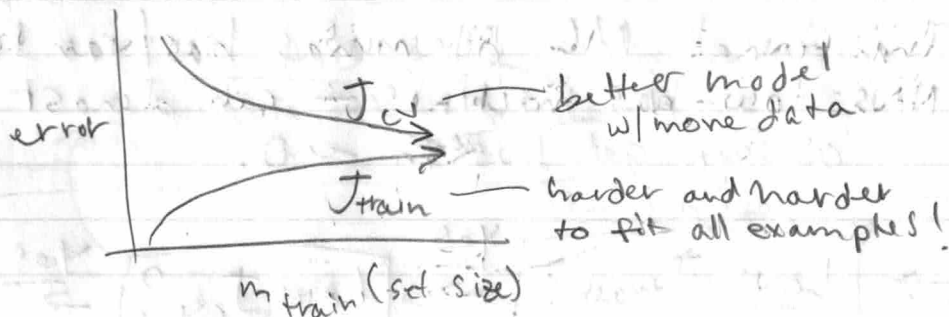 error
J_cv — better model
w/ more data
J_train — harder and harder
to fit all examples!
m_train (set size)